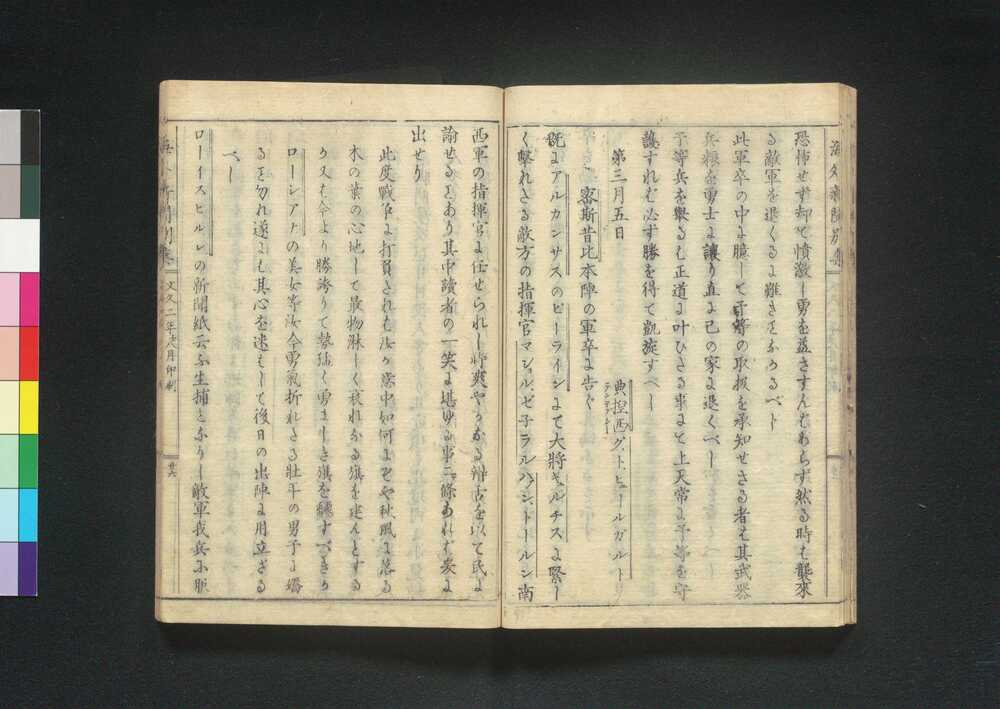 恐怖せず却て憤激し勇を益さすんもあらず然る時も襲來
る敵軍を退くるよ難き事なかるべト
此軍卒の中よ臆して予等の取扱を承知せさる者も其武器
兵糧を勇士よ譲り直よ己の家よ退くべし
予等兵を擧るも正道よ叶ひさる事よと上天常よ予等を守
護すれむ必す勝を得て凱旋すべし
第三月五日
典捏西グ、ト、ヒールガルト
密斯昔比本陣の軍卒よ告ぐ
既よアルカンサスのビーラインよて大將キルチスよ緊し
く擊れさる敵方の指揮官マジョルゼ子ラルハン、ドールン南
西軍の指揮官よ任せられし時爽やかなる辨舌を以て民よ
諭せる事あり其中讀者の一笑よ堪ゆる事二條あれむ爰よ
出せり
此度戰爭よ打負されも汝か意中如何よぞや秋風よ落る
木の葉の心地して最物淋しく衰れなる旗を建んとする
か又も今より勝誇りて勢猛く勇ましき旗を飜すべきか
ローシアナの美女等汝今勇氣折れさる壯年の男子よ嬌
る事勿れ遂よも其心を迷もして後日の出陣よ用立ざる
べし
ローイスヒルレの新聞紙云ふ生捕となりし敵軍我兵ふ脈
文久二年八月印刷
廿六